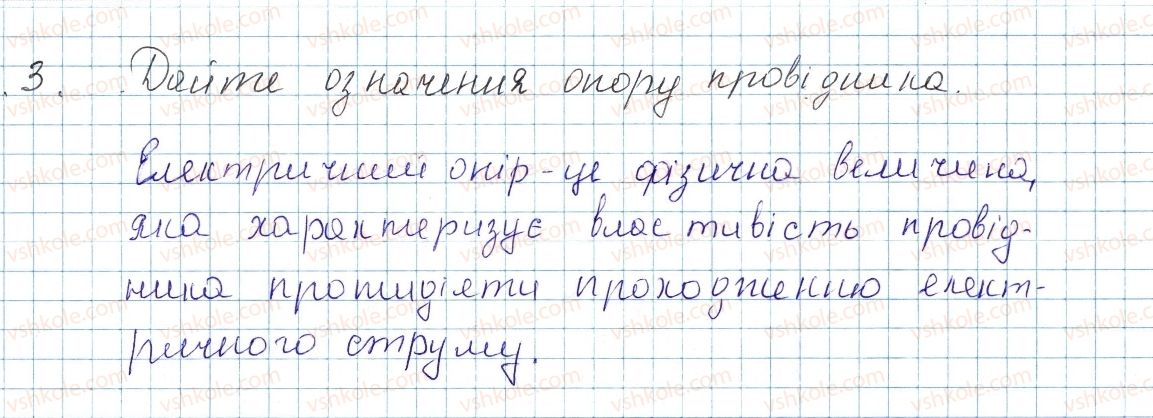 3. Дайте означення опору провідника.
Електричний опір - це фізична величина,
яка характеризує властивість провід-
ника протидіяти проходженню елект-
ричного струму.